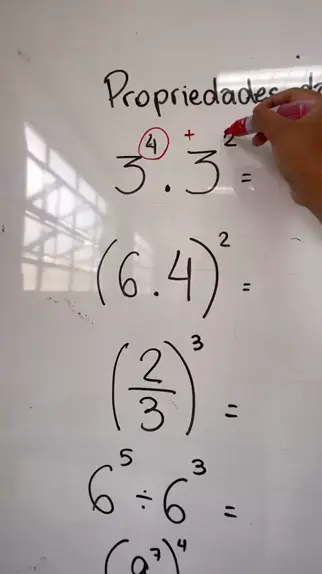 Propriedades
3⁴ + . 3² =
(6.4)² =
(2/3)³ =
6⁵ ÷ 6³ =
(a⁷)⁴